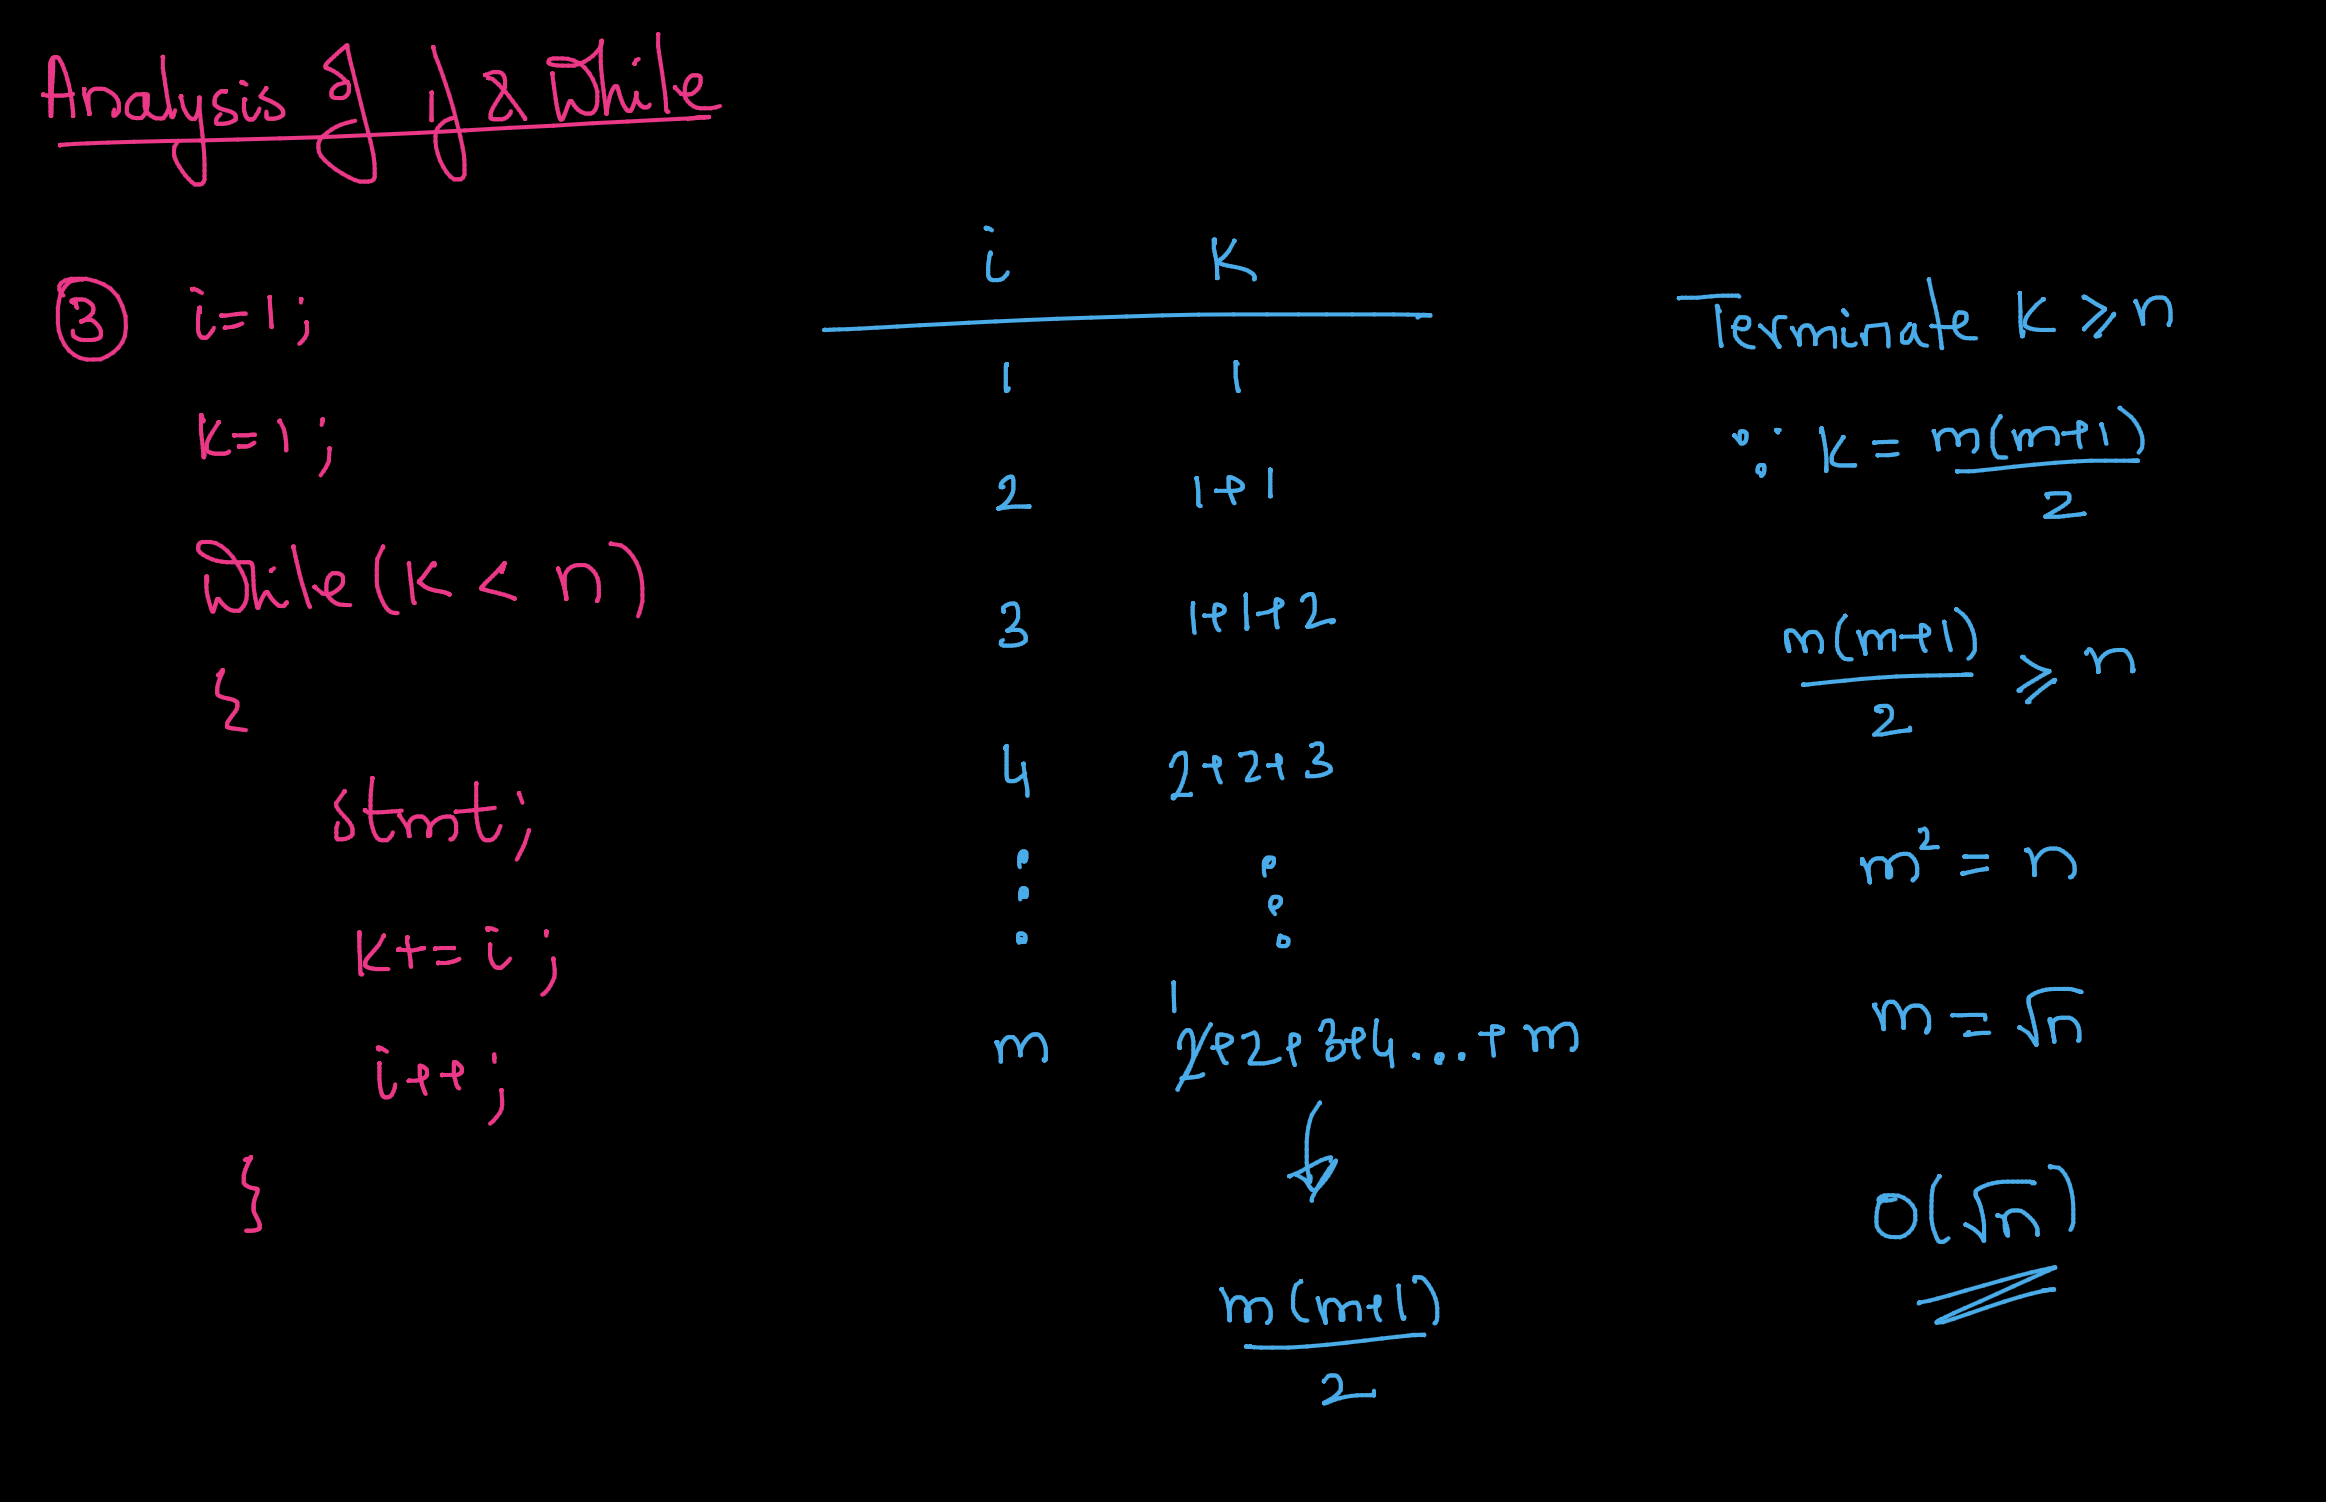 Analysis of if & While
③ i=1;
k=1;
While(k < n)
{
stmt;
k+= i;
i++;
}
i K
1 1
2 1+1
3 1+1+2
4 2+2+3
⋮ ⋮
1
m 2+2+3+4...+m
m(m+1)
2
Terminate k ⩾ n
∵ k = m(m+1)
2
m(m+1) ⩾ n
2
m² = n
m = √n
O(√n)